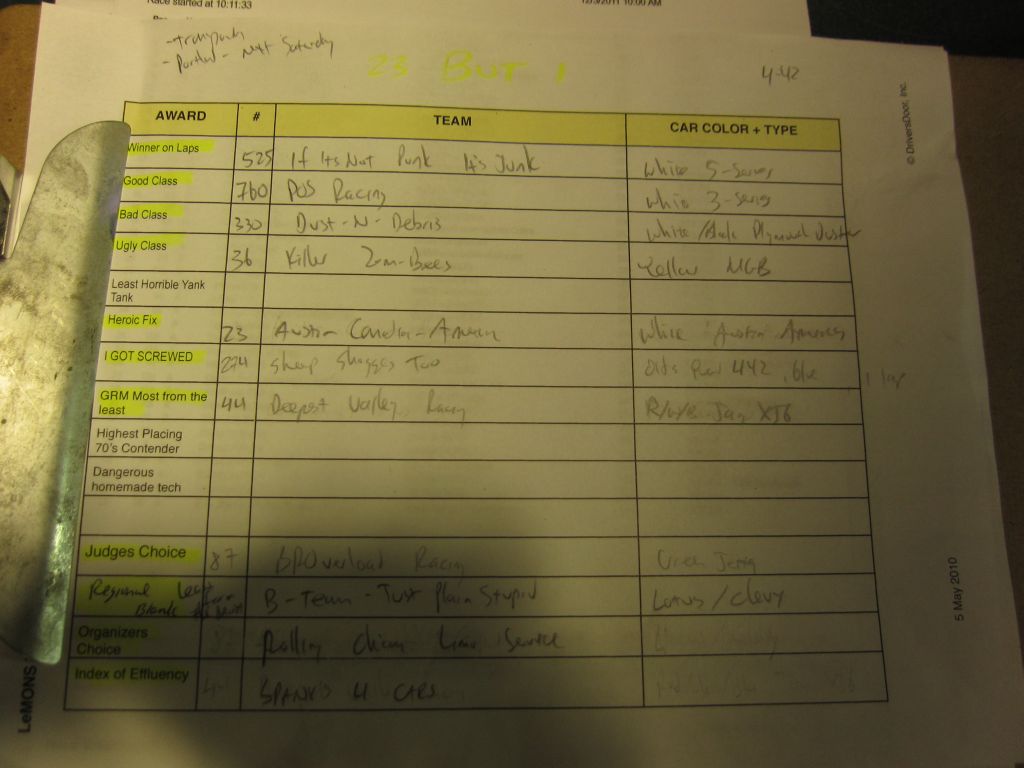 Race started at 10:11:33
12/5/2011 10:00 AM
- Next Saturday
23 BUT 1
4-42
© DriversDoor, Inc.
AWARD # TEAM CAR COLOR + TYPE
Winner on Laps 525 If Its Not Punk Its Junk White 5-Series
Good Class 760 POS Racing White 3-Series
Bad Class 330 Dust-N-Debris White/Black Plymouth Duster
Ugly Class 36 Killer Zom-Bees Yellow MGB
Least Horrible Yank
Tank
Heroic Fix 23 Austin White Austin
I GOT SCREWED 274 Sheep Shaggers Too Olds 442 1 lap
GRM Most from the
least 44 Deepest Valley Racing R/w/b Jag XJ6
Highest Placing
70's Contender
Dangerous
homemade tech
Judges Choice 87 BPOverload Racing Green Jetta
Regional B-Team - Just Plain Stupid Lotus / Chevy
Organizers
Choice Rolling Chicane Limo Service
Index of Effluency SPANK 4 CARS
LeMONS
5 May 2010